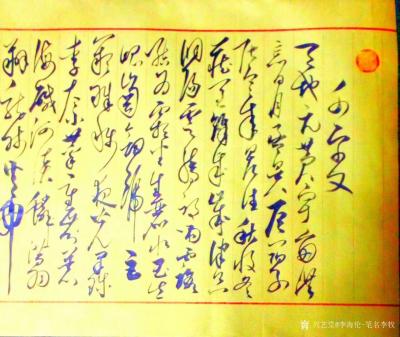 千字文
天地玄黃宇宙洪
荒日月盈昃辰宿列
張寒來暑往秋收冬
藏閏餘成歲律呂
調陽雲騰致雨露
結為霜金生麗水玉出
崑岡劍號巨
闕珠稱夜光果珍
李柰菜重芥薑
海鹹河淡鱗潛羽
翔龍師火帝
兴艺堂@李海伦-笔名李牧